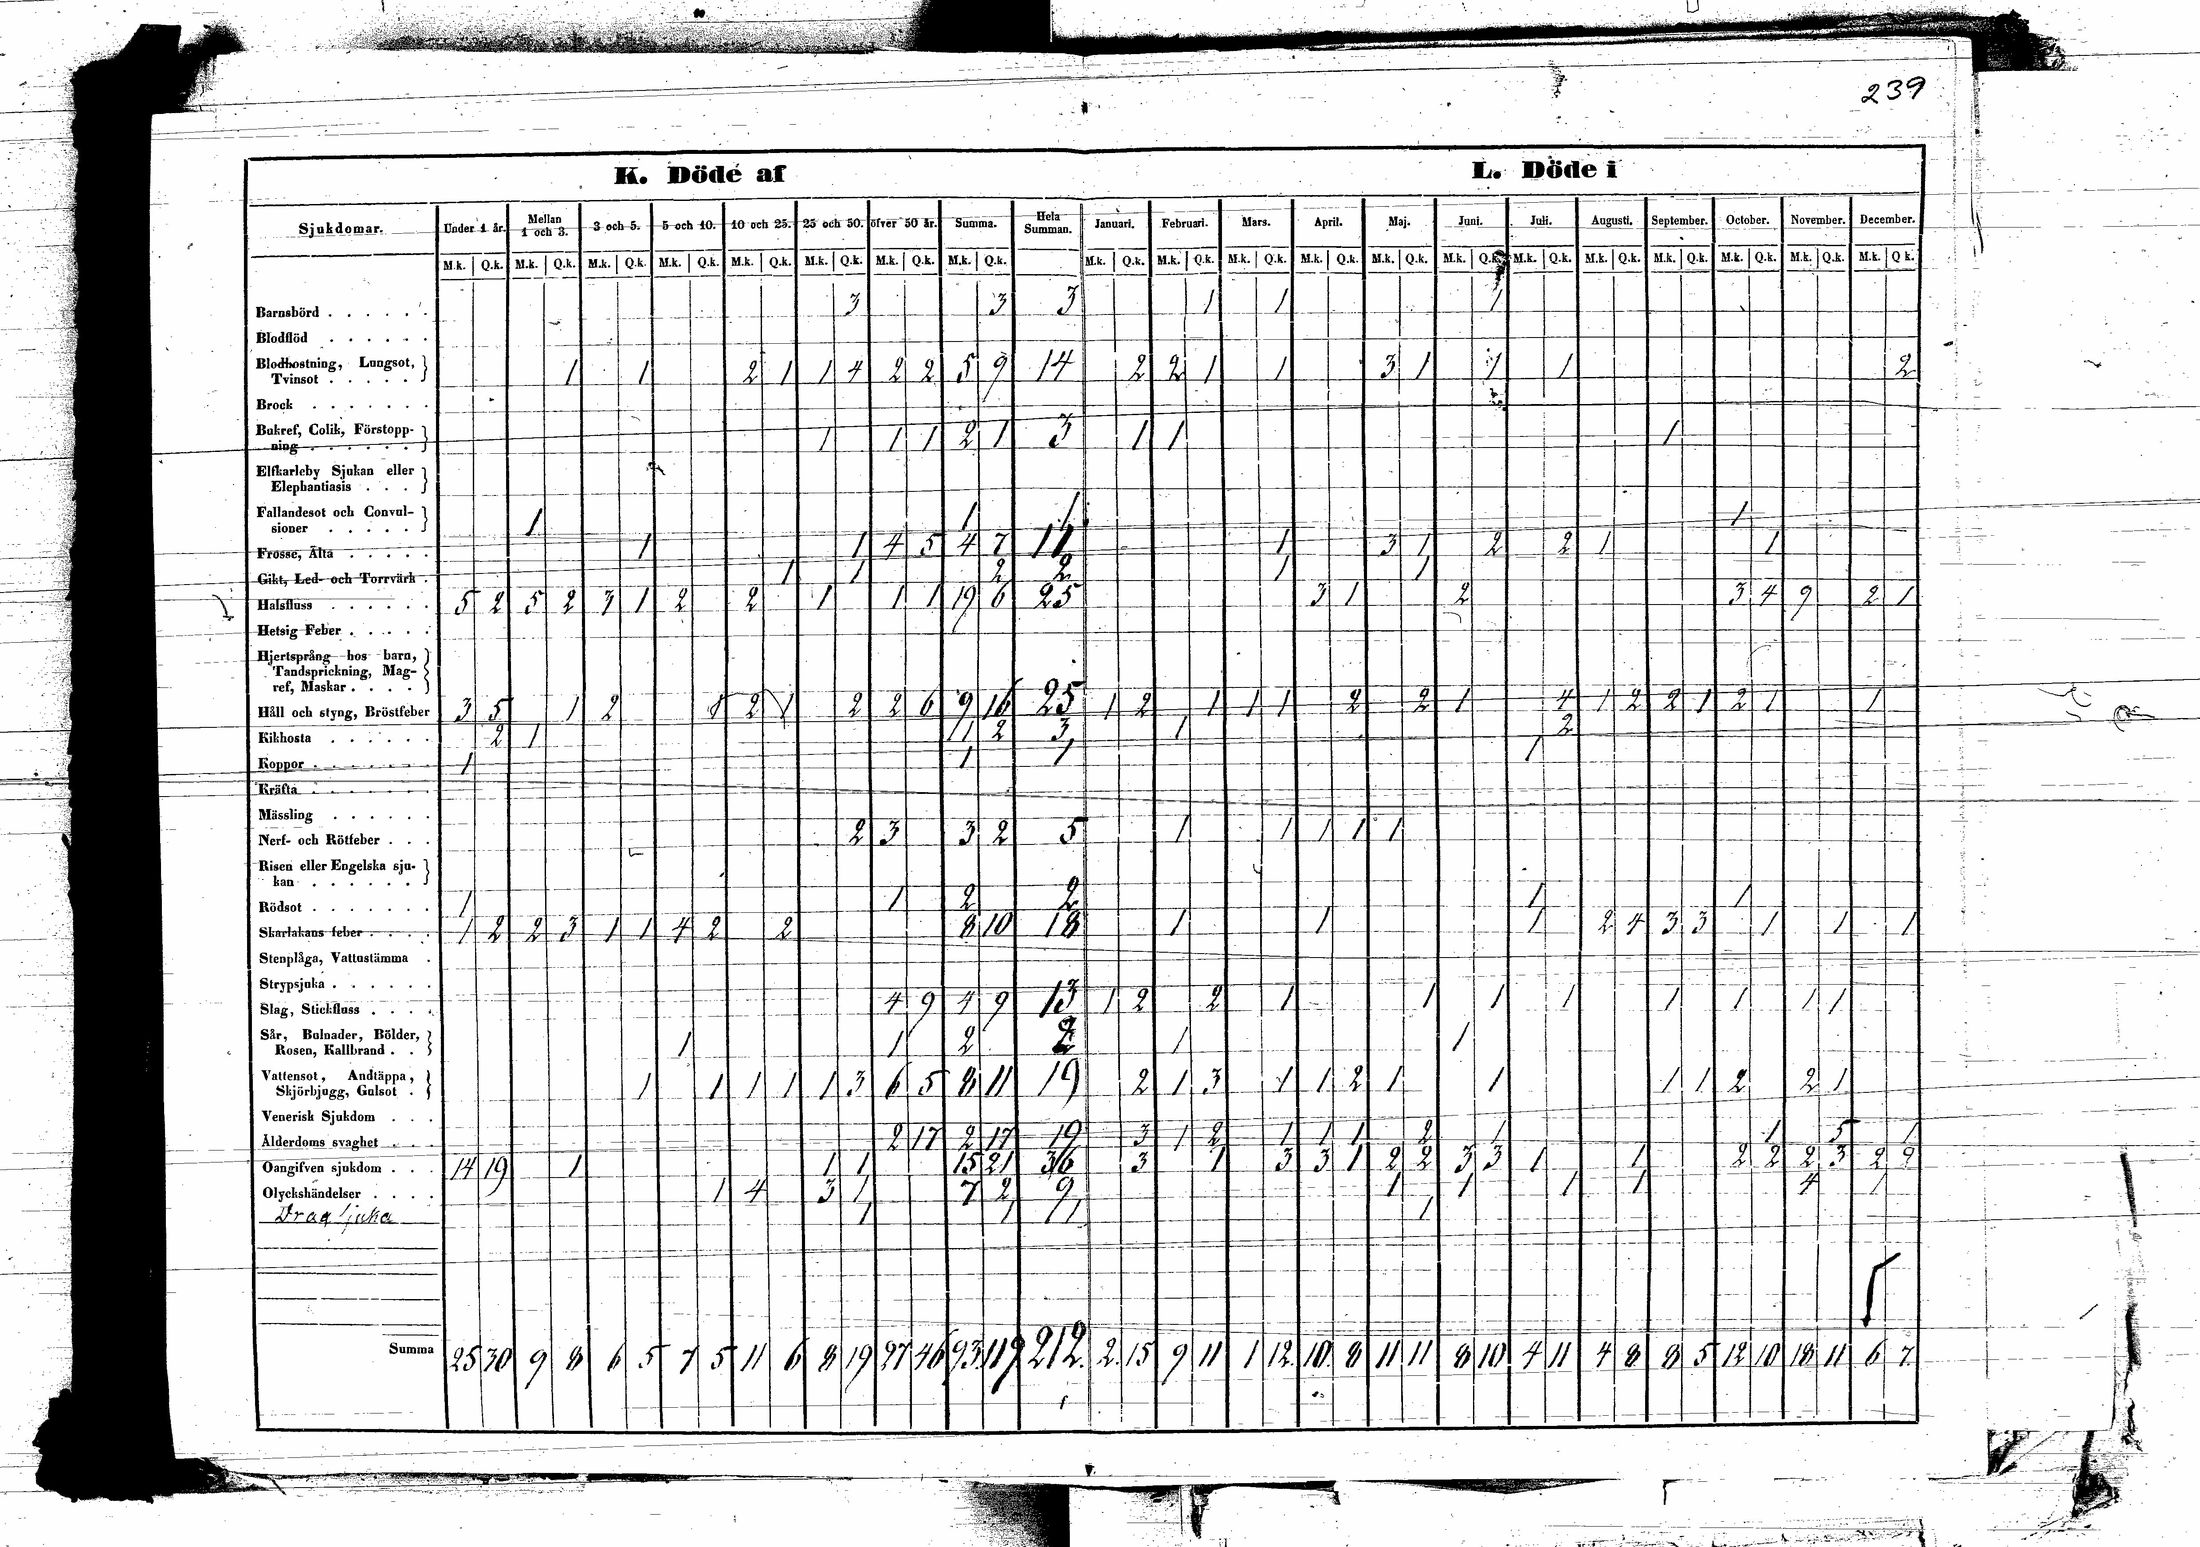 239
K. Döde af L. Döde i
Sjukdomar. Under 1 år. Mellan 1 och 3. 3 och 5. 5 och 10. 10 och 25. 25 och 50. öfver 50 år. Summa. Hela Summan. Januari. Februari. Mars. April. Maj. Juni. Juli. Augusti. September. October. November. December.
M.k. Q.k. M.k. Q.k. M.k. Q.k. M.k. Q.k. M.k. Q.k. M.k. Q.k. M.k. Q.k. M.k. Q.k. M.k. Q.k. M.k. Q.k. M.k. Q.k. M.k. Q.k. M.k. Q.k. M.k. Q.k. M.k. Q.k. M.k. Q.k. M.k. Q.k. M.k. Q.k. M.k. Q.k. M.k. Q k.
Barnsbörd . . . . . . 3 3 3 1 1 1
Blodflöd . . . . . .
Blodhostning, Lungsot,
Tvinsot . . . . . 1 1 2 1 1 4 2 2 5 9 14 2 2 1 1 3 1 1 1 2
Brock . . . . . . .
Bukref, Colik, Förstopp-
ning . . . . . . 1 1 1 2 1 3 1 1 1
Elfkarleby Sjukan eller
Elephantiasis . . .
Fallandesot och Convul-
sioner . . . . . 1 1 1 1
Frosse, Älta . . . . . 1 1 4 5 4 7 11 1 3 1 2 2 1 1
Gikt, Led- och Torrvärk . 1 1 2 2 1 1
Halsfluss . . . . . . 5 2 5 2 3 1 2 2 1 1 1 19 6 25 3 1 2 3 4 9 2 1
Hetsig Feber . . . . .
Hjertsprång hos barn,
Tandsprickning, Mag-
ref, Maskar . . . .
Håll och styng, Bröstfeber 3 5 1 2 1 2 1 2 2 6 9 16 25 1 2 1 1 1 2 2 1 4 1 2 2 1 2 1 1
Kikhosta . . . . . . 2 1 1 2 3 1 2
Koppor . . . . . . . 1 1 1 1
Kräfta . . . . . . .
Mässling . . . . . .
Nerf- och Rötfeber . . . 2 3 3 2 5 1 1 1 1 1
Risen eller Engelska sju-
kan . . . . . .
Rödsot . . . . . . . 1 1 2 2 1 1
Skarlakans feber . . . . 1 2 2 3 1 1 4 2 2 8 10 18 1 1 1 2 4 3 3 1 1 1
Stenplåga, Vattustämma .
Strypsjuka . . . . . .
Slag, Stickfluss . . . . 4 9 4 9 13 1 2 2 1 1 1 1 1 1 1 1
Sår, Bulnader, Bölder,
Rosen, Kallbrand . . 1 1 2 2 1 1
Vattensot, Andtäppa,
Skjörbjugg, Gulsot . 1 1 1 1 1 3 6 5 8 11 19 2 1 3 1 1 2 1 1 1 1 2 2 1
Venerisk Sjukdom . . .
Ålderdoms svaghet . . . 2 17 2 17 19 3 1 2 1 1 1 2 1 1 5 1
Oangifven sjukdom . . . 14 19 1 1 1 15 21 36 3 1 3 3 1 2 2 3 3 1 1 2 2 2 3 2 2
Olyckshändelser . . . . 1 4 3 1 7 2 9 1 1 1 1 4 1
Dragsjuka 1 1 1 1
Summa 25 30 9 8 6 5 7 5 11 6 8 19 27 46 93 119 212. 2. 15 9 11 1 12. 10. 8 11 11 8 10 4 11 4 8 8 5 12 10 18 11 6 7.